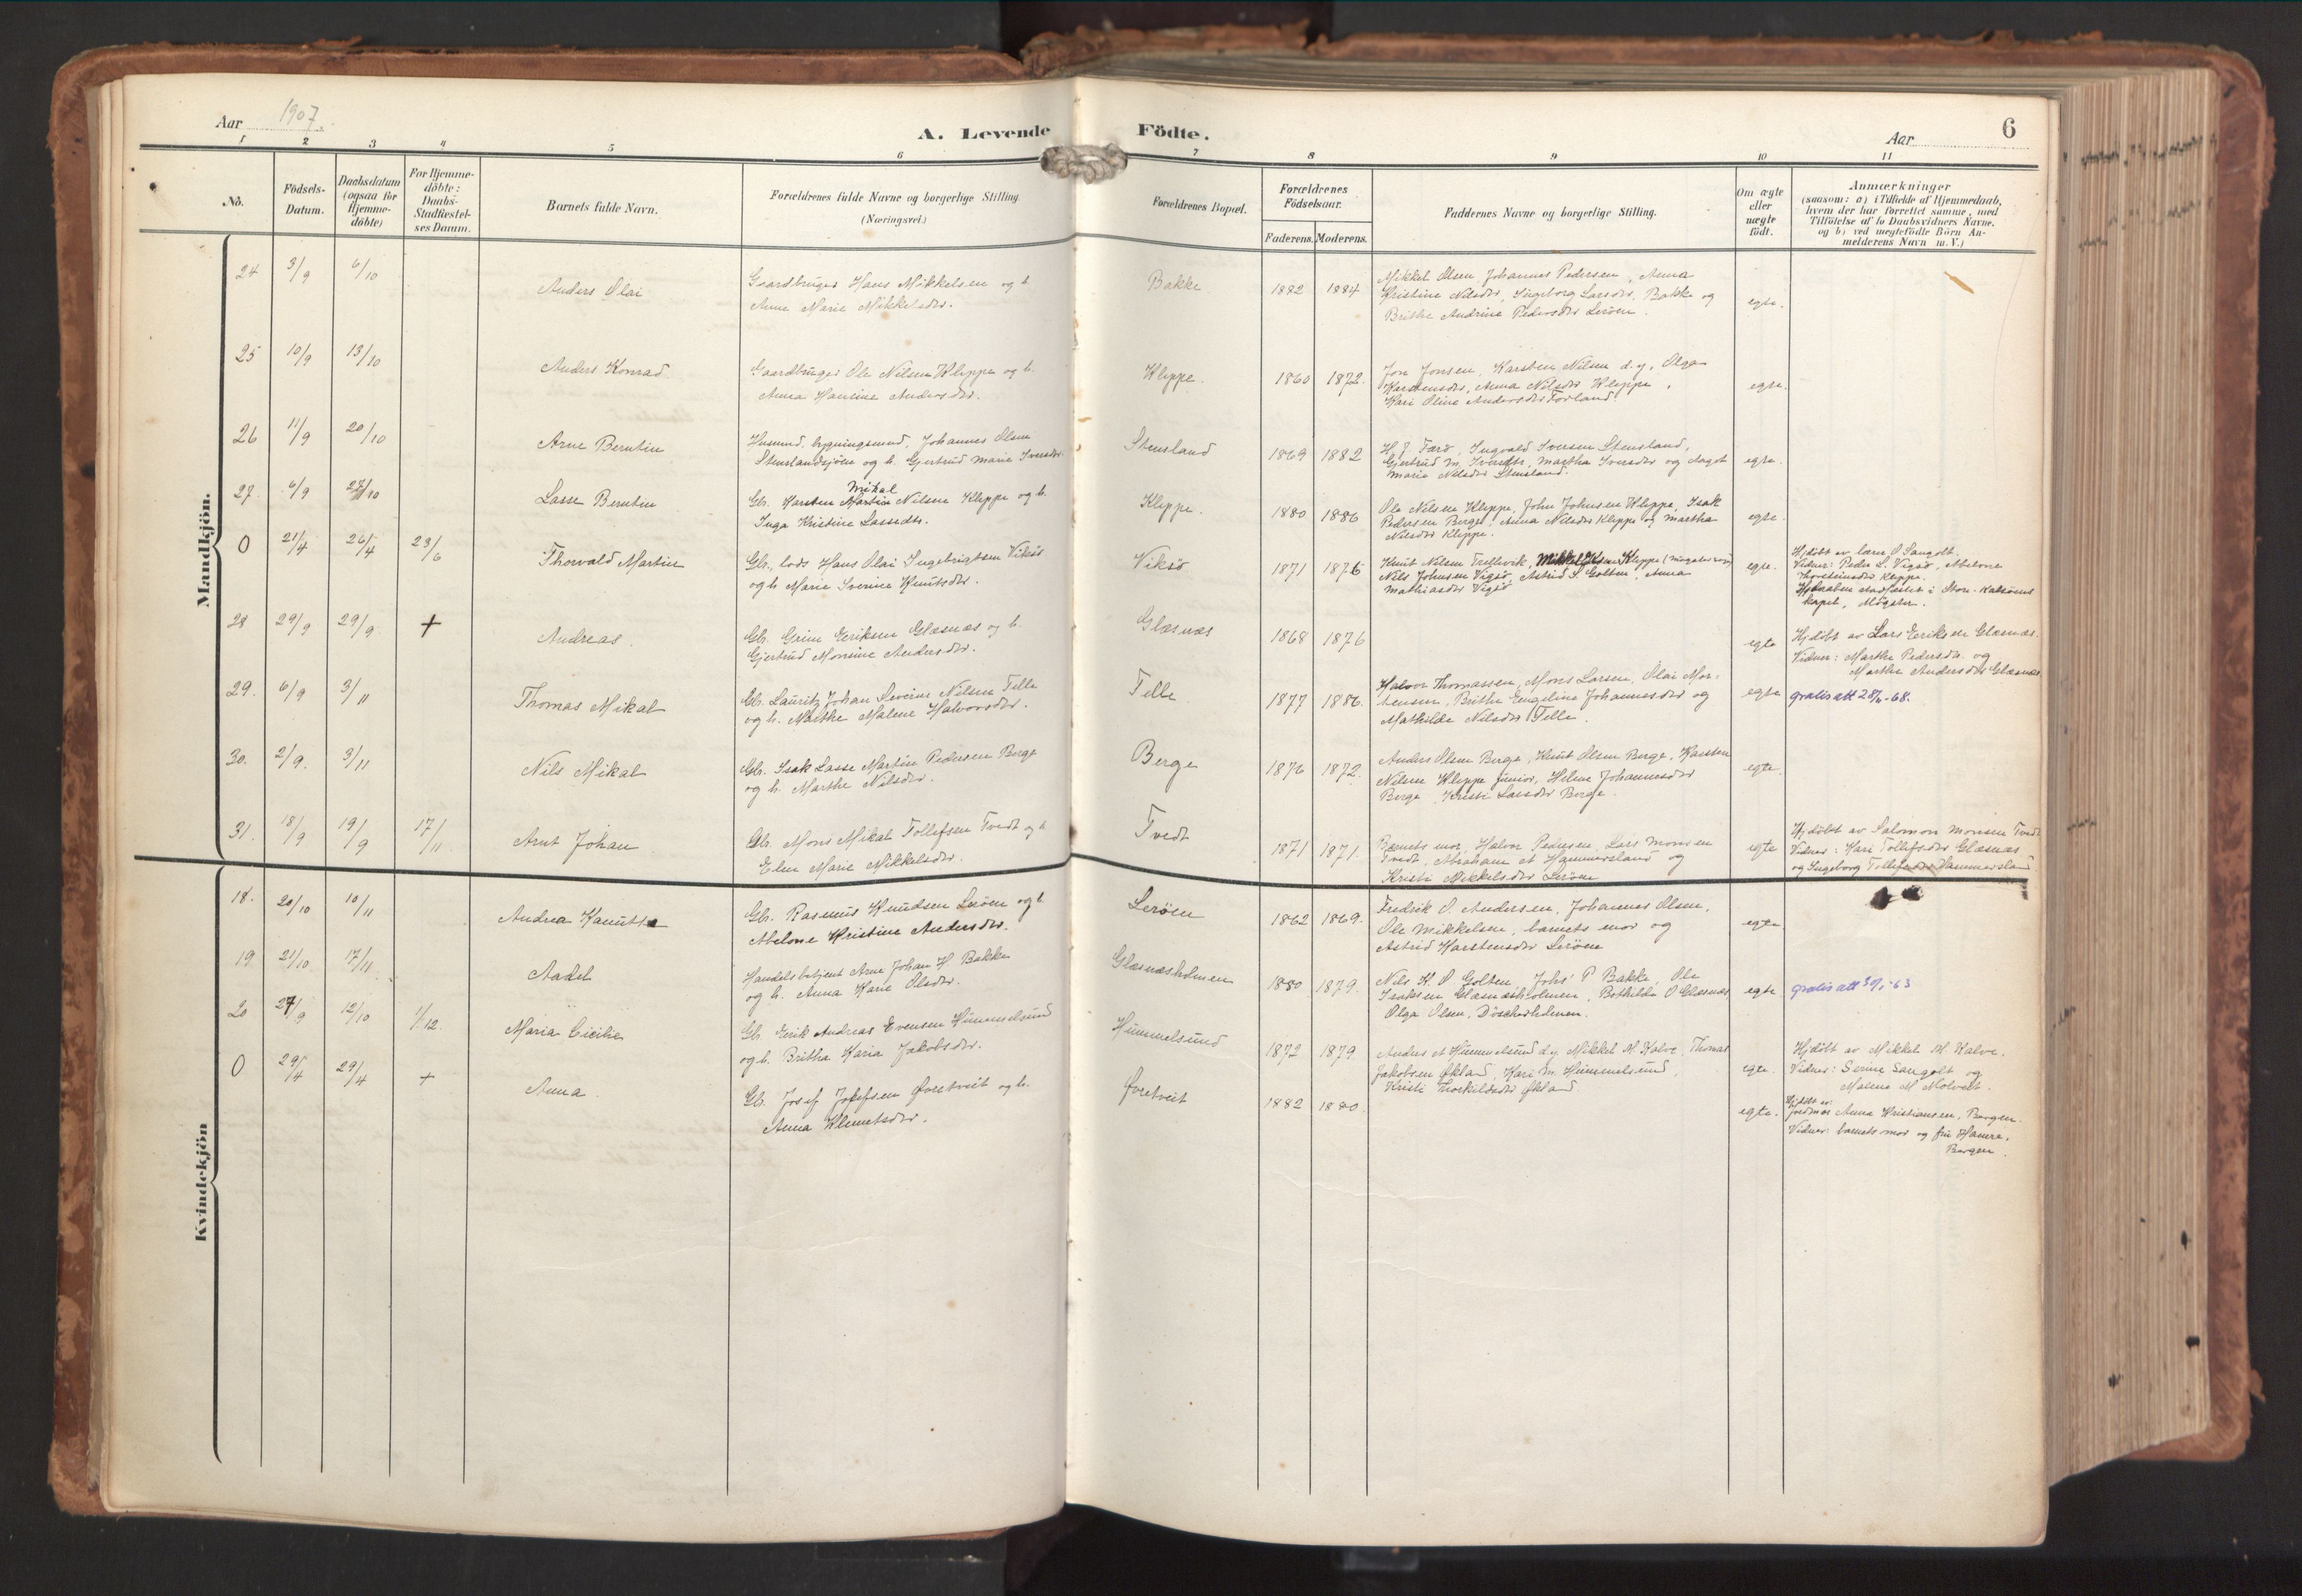 Aar 1907.
A. Levende Födte.
Aar
6
1 2 3 4 5 6 7 8 9 10 11
No.
Födsels-
Datum.
Daabsdatum
(ogsaa for
Hjemme-
döbte)
For Hjemme-
döbte:
Daabs-
Stadfæstel-
ses Datum.
Barnets fulde Navn.
Forældrenes fulde Navne og borgerlige Stilling
(Næringsvei.)
Forældrenes Bopæl.
Forældrenes
Födselsaar.
Faderens. Moderens.
Faddernes Navne og borgerlige Stilling.
Om ægte
eller
uægte
födt.
Anmærkninger
(saasom: a) i Tilfælde af Hjemmedaab,
hvem der har forrettet samme, med
Tilföielse af to Daabsvidners Navne.
og b) ved uegtefödte Börn An-
melderens Navn m. V.)
Mandkjön.
24 3/9 6/10 Anders Olai
Gaardbruger Hans Mikkelsen og h.
Anne Marie Mikkelsdtr.
Bakke 1882 1884
Mikkel Olsen, Johannes Pedersen, Anna
Kristine Nilsdtr, Ingeborg Larsdtr, Bakke og
Brithe Andrine Pedersdtr Leröen.
egte.
25 10/9 13/10 Anders Konrad
Gaardbruger Ole Nilsen Klippe og h.
Anna Hansine Andersdtr.
Klippe. 1860 1872.
Jon Jonsen, Karsten Nilsen d.y., Olga
Karstensdtr, Anna Nilsdtr Kleppe,
Kari Oline Andersdtr Forland.
egte.
26 11/9 20/10 Arne Berntin
Husmd. bygningsmd. Johannes Olsen
Stenslandsjöen og h. Gjertrud Marie Iversdtr
Stensland 1869 1882
H. J. Færö, Ingvald Iversen Stensland,
Gjertrud M. Iversdtr, Martha Iversdtr og Aagot
Marie Nilsdtr Stensland.
egte.
27. 6/9 27/10 Lasse Berntin
Mikal
Gb. Karsten Martin Nilsen Klippe og h.
Inga Kristine Lassedtr.
Klippe. 1880 1886
Ole Nilsen Klippe, John Johnsen Klippe, Isak
Pedersen Berge, Anna Nilsdtr Klippe og Martha
Nilsdtr Klippe.
egte.
0 21/4 26/4 23/6 Thorvald Martin
Gb., lods Hans Olai Ingebrigtsen Viksö
og h. Marie Sverine Knutsdtr.
Viksö 1871 1876
Knut Nilsen Trellevik, Mikkel Olsen Klippe
Nils Johnsen Vigsö, Astrid S. Golten, Anna
Mathiasdtr Vigsö
egte.
Hjdöbt av lærer O Sangolt.
Vidner: Peder L. Vigsö, Abelone
Thorsteinsdtr Kleppe.
Hjdaaben stadfæstet i Store-Kalsöens
kapel, Mögster.
28 29/9 29/9 + Andreas.
Gb. Grim Eriksen Glæsnæs og h.
Gjertrud Monsine Andersdtr.
Glæsnæs 1868 1876
egte
Hjdöbt av Lars Eriksen Glæsnæs.
Vidner: Marthe Pedersdtr. og
Marthe Andersdtr Glæsnæs
29. 6/9 3/11 Thomas Mikal
Gb. Lauritz Johan Severin Nilsen Telle
og h. Marthe Malene Halvorsdtr.
Telle 1877 1886.
Halvor Thomassen, Mons Larsen, Olai Mor-
tensen, Brithe Engeline Johannesdtr og
Mathilde Nilsdtr Telle.
egte gratis att 28/11-68.
30. 2/9. 3/11 Nils Mikal
Gb. Isak Lasse Martin Pedersen Berge
og h. Marthe Nilsdtr.
Berge 1876 1872.
Anders Olsen Berge, Knut Olsen Berge, Karsten
Nilsen Klippe junior, Helene Johannesdtr
Berge, Kristi Larsdtr Berge.
egte.
31. 18/9 19/9 17/11 Arnt Johan
Gb. Mons Mikal Tollefsen Tvedt og h
Elen Marie Mikkelsdtr.
Tvedt 1871 1871.
Barnets mor, Halvor Pedersen, Lars Monsen
Tvedt, Abraham et Hammersland og
Kristi Mikkelsdtr Leröen
egte
Hjdöbt av Salomon Monsen Tvedt
Vidner: Kari Tollefsdtr Glæsnæs
og Ingeborg Tollefsdtr Hammersland
Kvindekjön
18. 20/10 10/11 Andrea Kanutte
Gb. Rasmus Knudsen Leröen og h
Abelone Kristine Andersdtr.
Leröen 1862 1869.
Fredrik O. Andersen, Johannes Olsen,
Ole Mikkelsen, barnets mor og
Astrid Karstensdtr Leröen
egte
19 21/10 17/11 Aadel
Handelsbetjent Arne Johan H. Bakke
og h. Anna Karie Olsdtr.
Glæsnæsholmen 1880 1879.
Nils K. O Golten, Johs P Bakke, Ole
Isaksen Glæsnæsholmen, Bothilde O Glæsnæs
Olga Olsen, Döscherholmen.
egte gratis att
20 27/9 12/10 1/12. Maria Cicilie
Gb. Erik Andreas Evensen Hummelsund
og h. Britha Karia Jakobsdtr.
Hummelsund 1872 1879
Anders et Hummelsund d.y. Mikkel M. Kalve, Thomas
Jakobsen Økland, Kari M. Hummelsund,
Kristi Thorkildsdtr Økland
egte.
Hjdöbt av Mikkel M. Kalve.
Vidner: Serine Sangolt og
Malene M Molvat.
0 29/4 29/4 + Anna.
Gb. Josef Josefsen Øvretveit og h.
Anna Klemetsdtr.
Øvretveit 1882 1880.
egte.
Hjdöbt av
jordmor Anna Kristiansen, Bergen.
Vidner: barnets mor og fru Hamre,
Bergen.